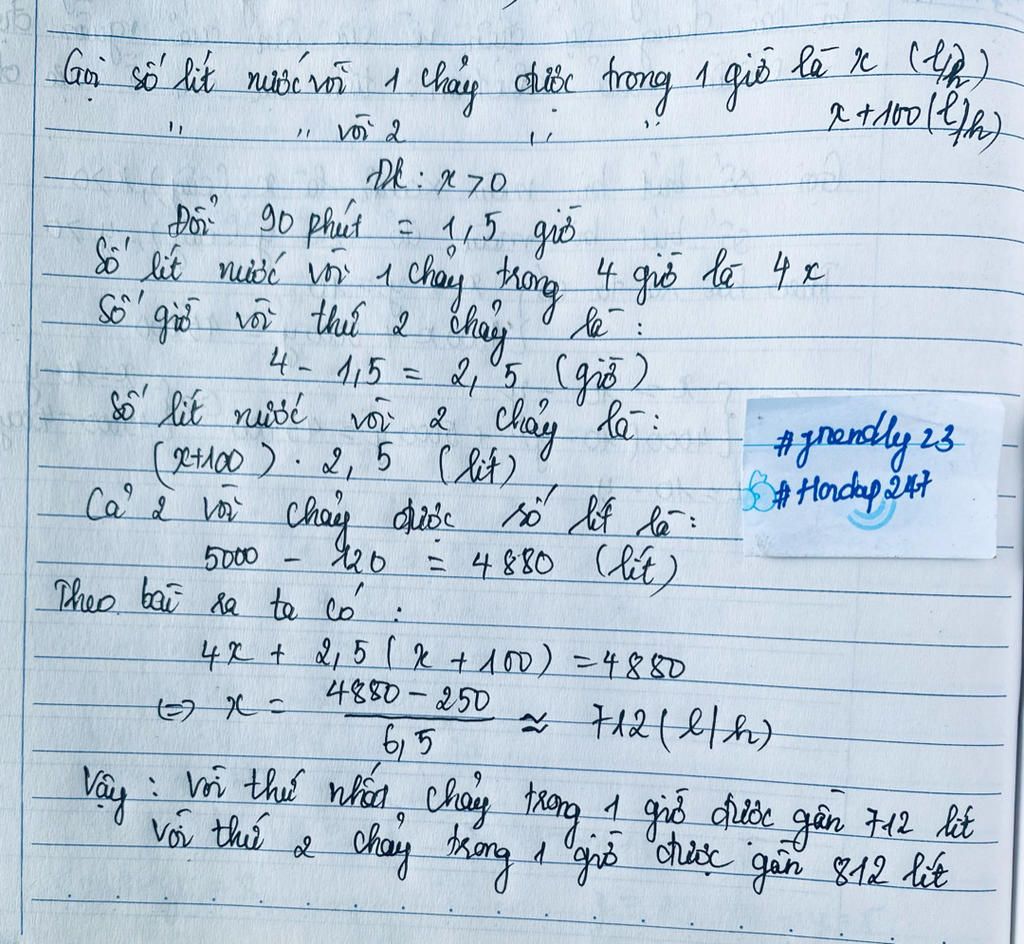 Gọi số lít nước vòi 1 chảy được trong 1 giờ là x (l/h)
" " vòi 2 " " x + 100 (l/h)
Đk : x > 0
Đổi 90 phút = 1,5 giờ
Số lít nước vòi 1 chảy trong 4 giờ là 4x
Số giờ vòi thứ 2 chảy là :
4 - 1,5 = 2,5 (giờ)
Số lít nước vòi 2 chảy là :
(x+100) . 2,5 (lít)
Cả 2 vòi chảy được số lít là :
5000 - 120 = 4880 (lít)
Theo bài ra ta có :
4x + 2,5 ( x + 100) = 4880
⇔ x = (4880 - 250) / 6,5 ≈ 712 (l/h)
Vậy : vòi thứ nhất chảy trong 1 giờ được gần 712 lít
vòi thứ 2 chảy trong 1 giờ được gần 812 lít
#friendly23
#Hoidap247